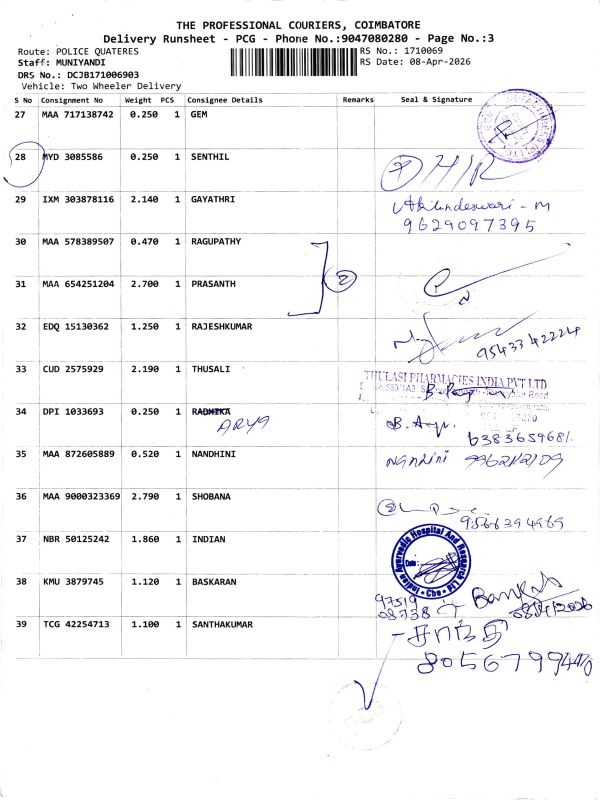 THE PROFESSIONAL COURIERS, COIMBATORE
Delivery Runsheet - PCG - Phone No.:9047080280 - Page No.:3
Route: POLICE QUATERES
RS No.: 1710069
Staff: MUNIYANDI
RS Date: 08-Apr-2026
DRS No.: DCJB171006903
Vehicle: Two Wheeler Delivery
S No Consignment No Weight PCS Consignee Details Remarks Seal & Signature
27 MAA 717138742 0.250 1 GEM
28 MYD 3085586 0.250 1 SENTHIL
29 IXM 303878116 2.140 1 GAYATHRI
9629097395
30 MAA 578389507 0.470 1 RAGUPATHY
2
31 MAA 654251204 2.700 1 PRASANTH
32 EDQ 15130362 1.250 1 RAJESHKUMAR
9543342224
33 CUD 2575929 2.190 1 THUSALI
THULASI PHARMACIES INDIA PVT LTD
34 DPI 1033693 0.250 1 RADHIKA
ARYA
6383659681
35 MAA 872605889 0.520 1 NANDHINI
Nandhini
36 MAA 9000323369 2.790 1 SHOBANA
9566394969
37 NBR 50125242 1.860 1 INDIAN
Ayurvedic Hospital And Research
38 KMU 3879745 1.120 1 BASKARAN
97519
08738
08/4/2026
39 TCG 42254713 1.100 1 SANTHAKUMAR